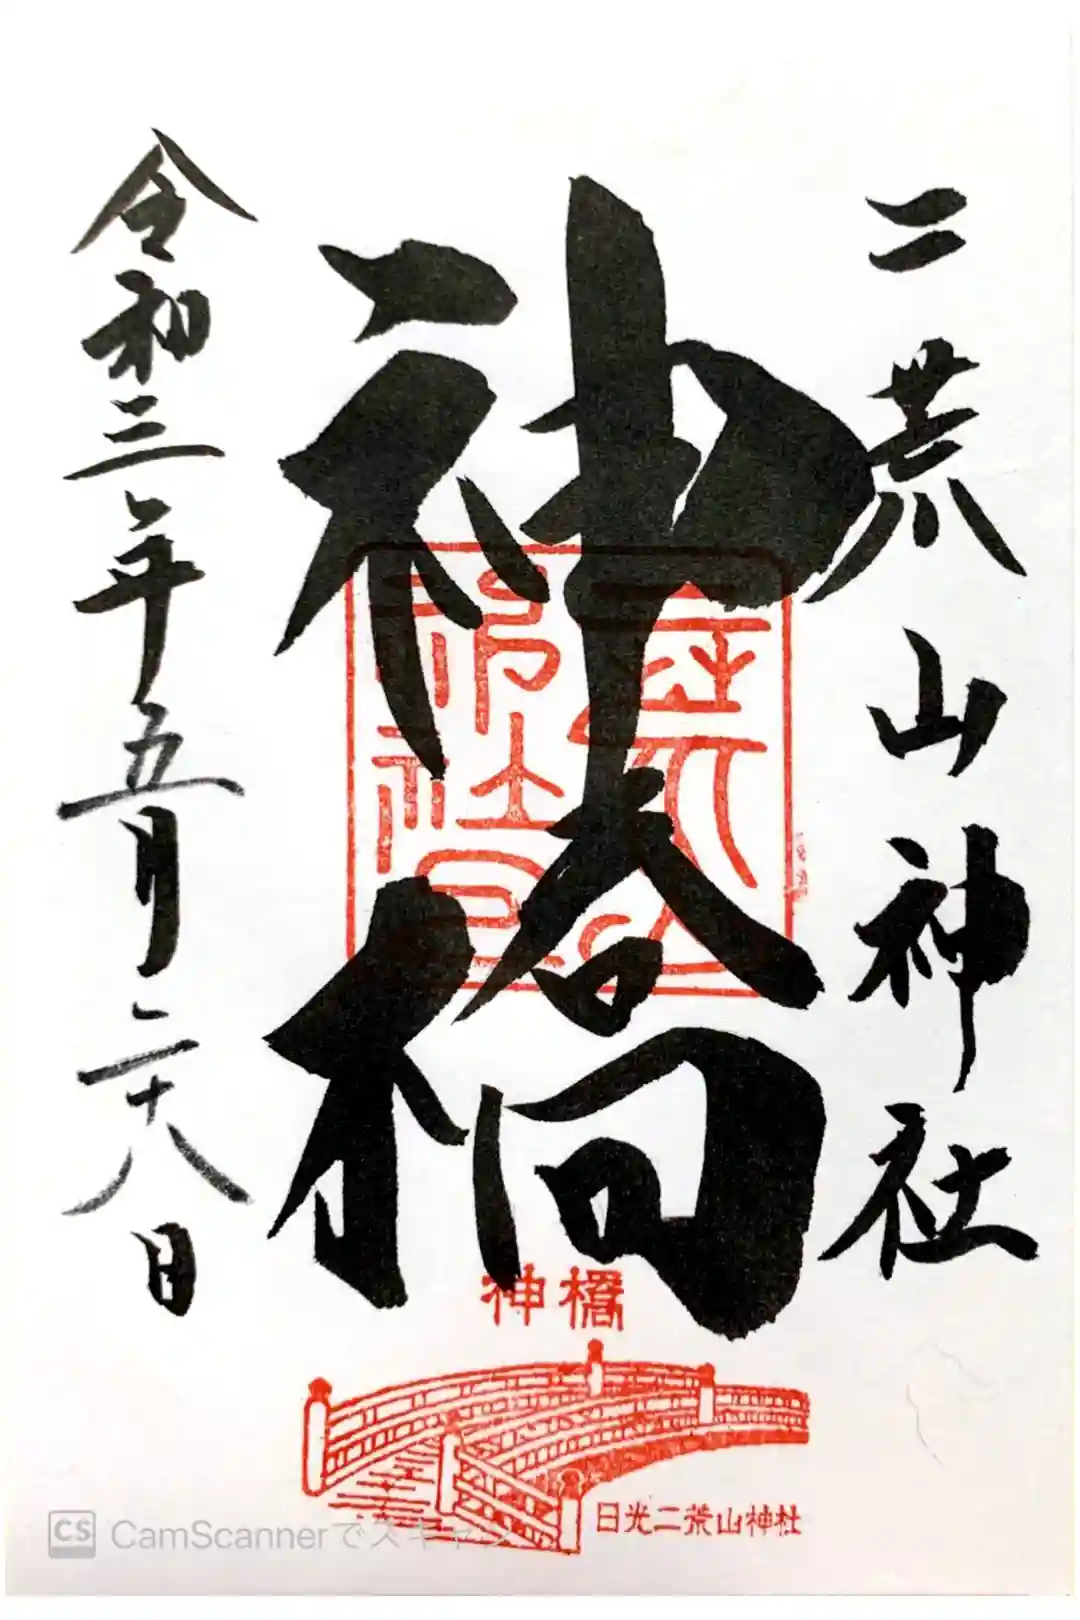 二荒山神社
神橋
令和三年五月二十八日
神橋
日光二荒山神社
CS CamScannerでスキャン